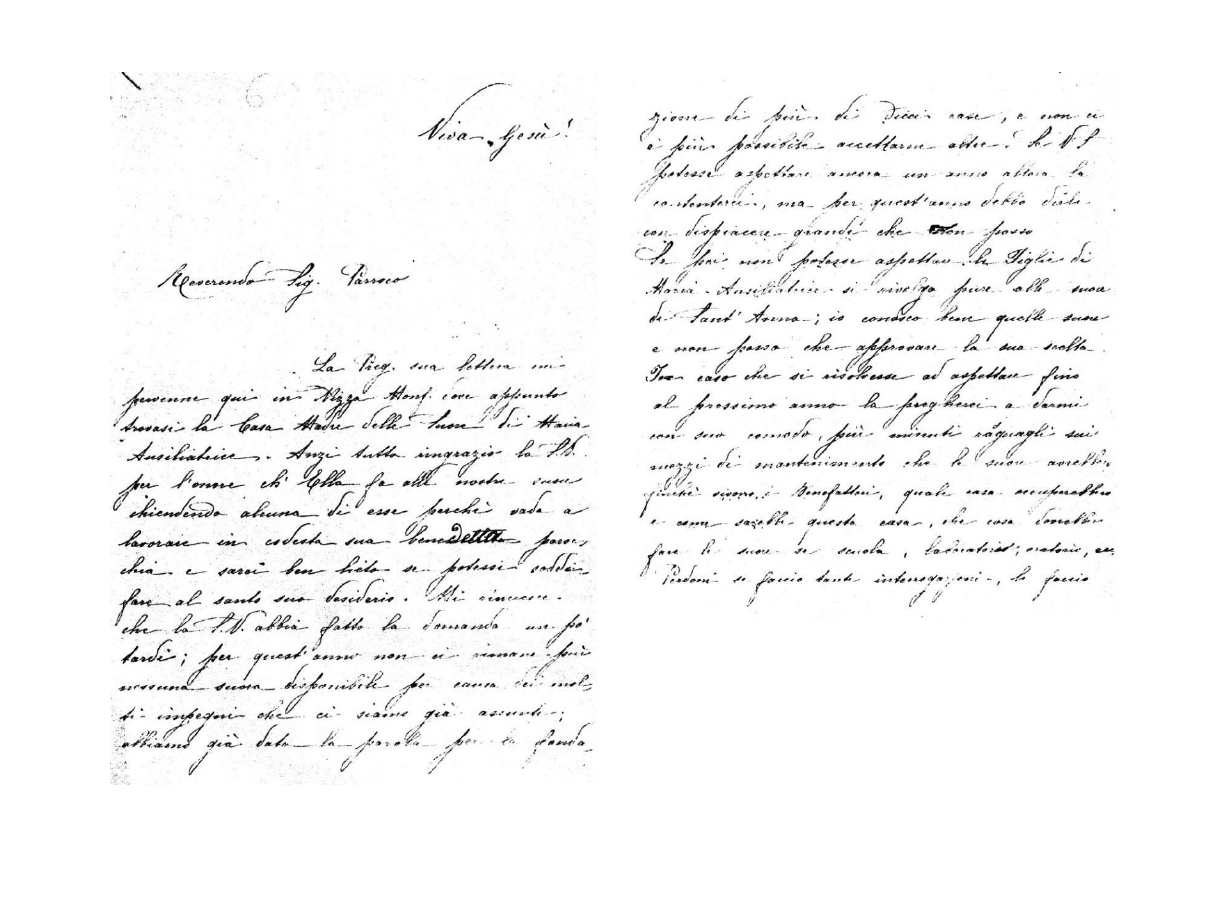 Viva Gesù!
Reverendo Sig. Parroco
La Preg. sua lettera mi
pervenne qui in Nizza Monf. dove appunto
trovasi la Casa Madre delle Suore di Maria
Ausiliatrice. Anzi tutto ringrazio la S.V.
per l'onore ch'Ella fa alle nostre suore
chiedendo alcuna di esse perchè vada a
lavorare in codesta sua benedetta parroc-
chia e sarei ben lieto se potessi soddis-
fare al santo suo desiderio. Mi rincresce
che la S.V. abbia fatto la domanda un pò
tardi; per quest'anno non ci rimane più
nessuna suora disponibile per causa dei mol-
ti impegni che ci siamo già assunti;
abbiamo già data la parola per la fonda-
zione di più di dieci case, e non ci
è più possibile accettarne altre! Se V S
potesse aspettare ancora un anno allora la
contenterei, ma per quest'anno debbo dirle
con dispiacere grande che non posso
Se poi non potesse aspettare le Figlie di
Maria Ausiliatrice si rivolga pure alle suore
di Sant'Anna; io conosco bene quelle suore
e non posso che approvare la sua scelta.
In caso che si risolvesse ad aspettare fino
al prossimo anno la pregherei a darmi
con suo comodo, più minuti ragguagli sui
mezzi di mantenimento che le suore avrebbero
finchè vivono i Benefattori, quale casa occuperebbero
e come sarebbe questa casa, che cosa dovrebbero
fare le suore se scuola, laboratorio, oratorio, ecc.
Perdoni se faccio tante interrogazioni, le faccio